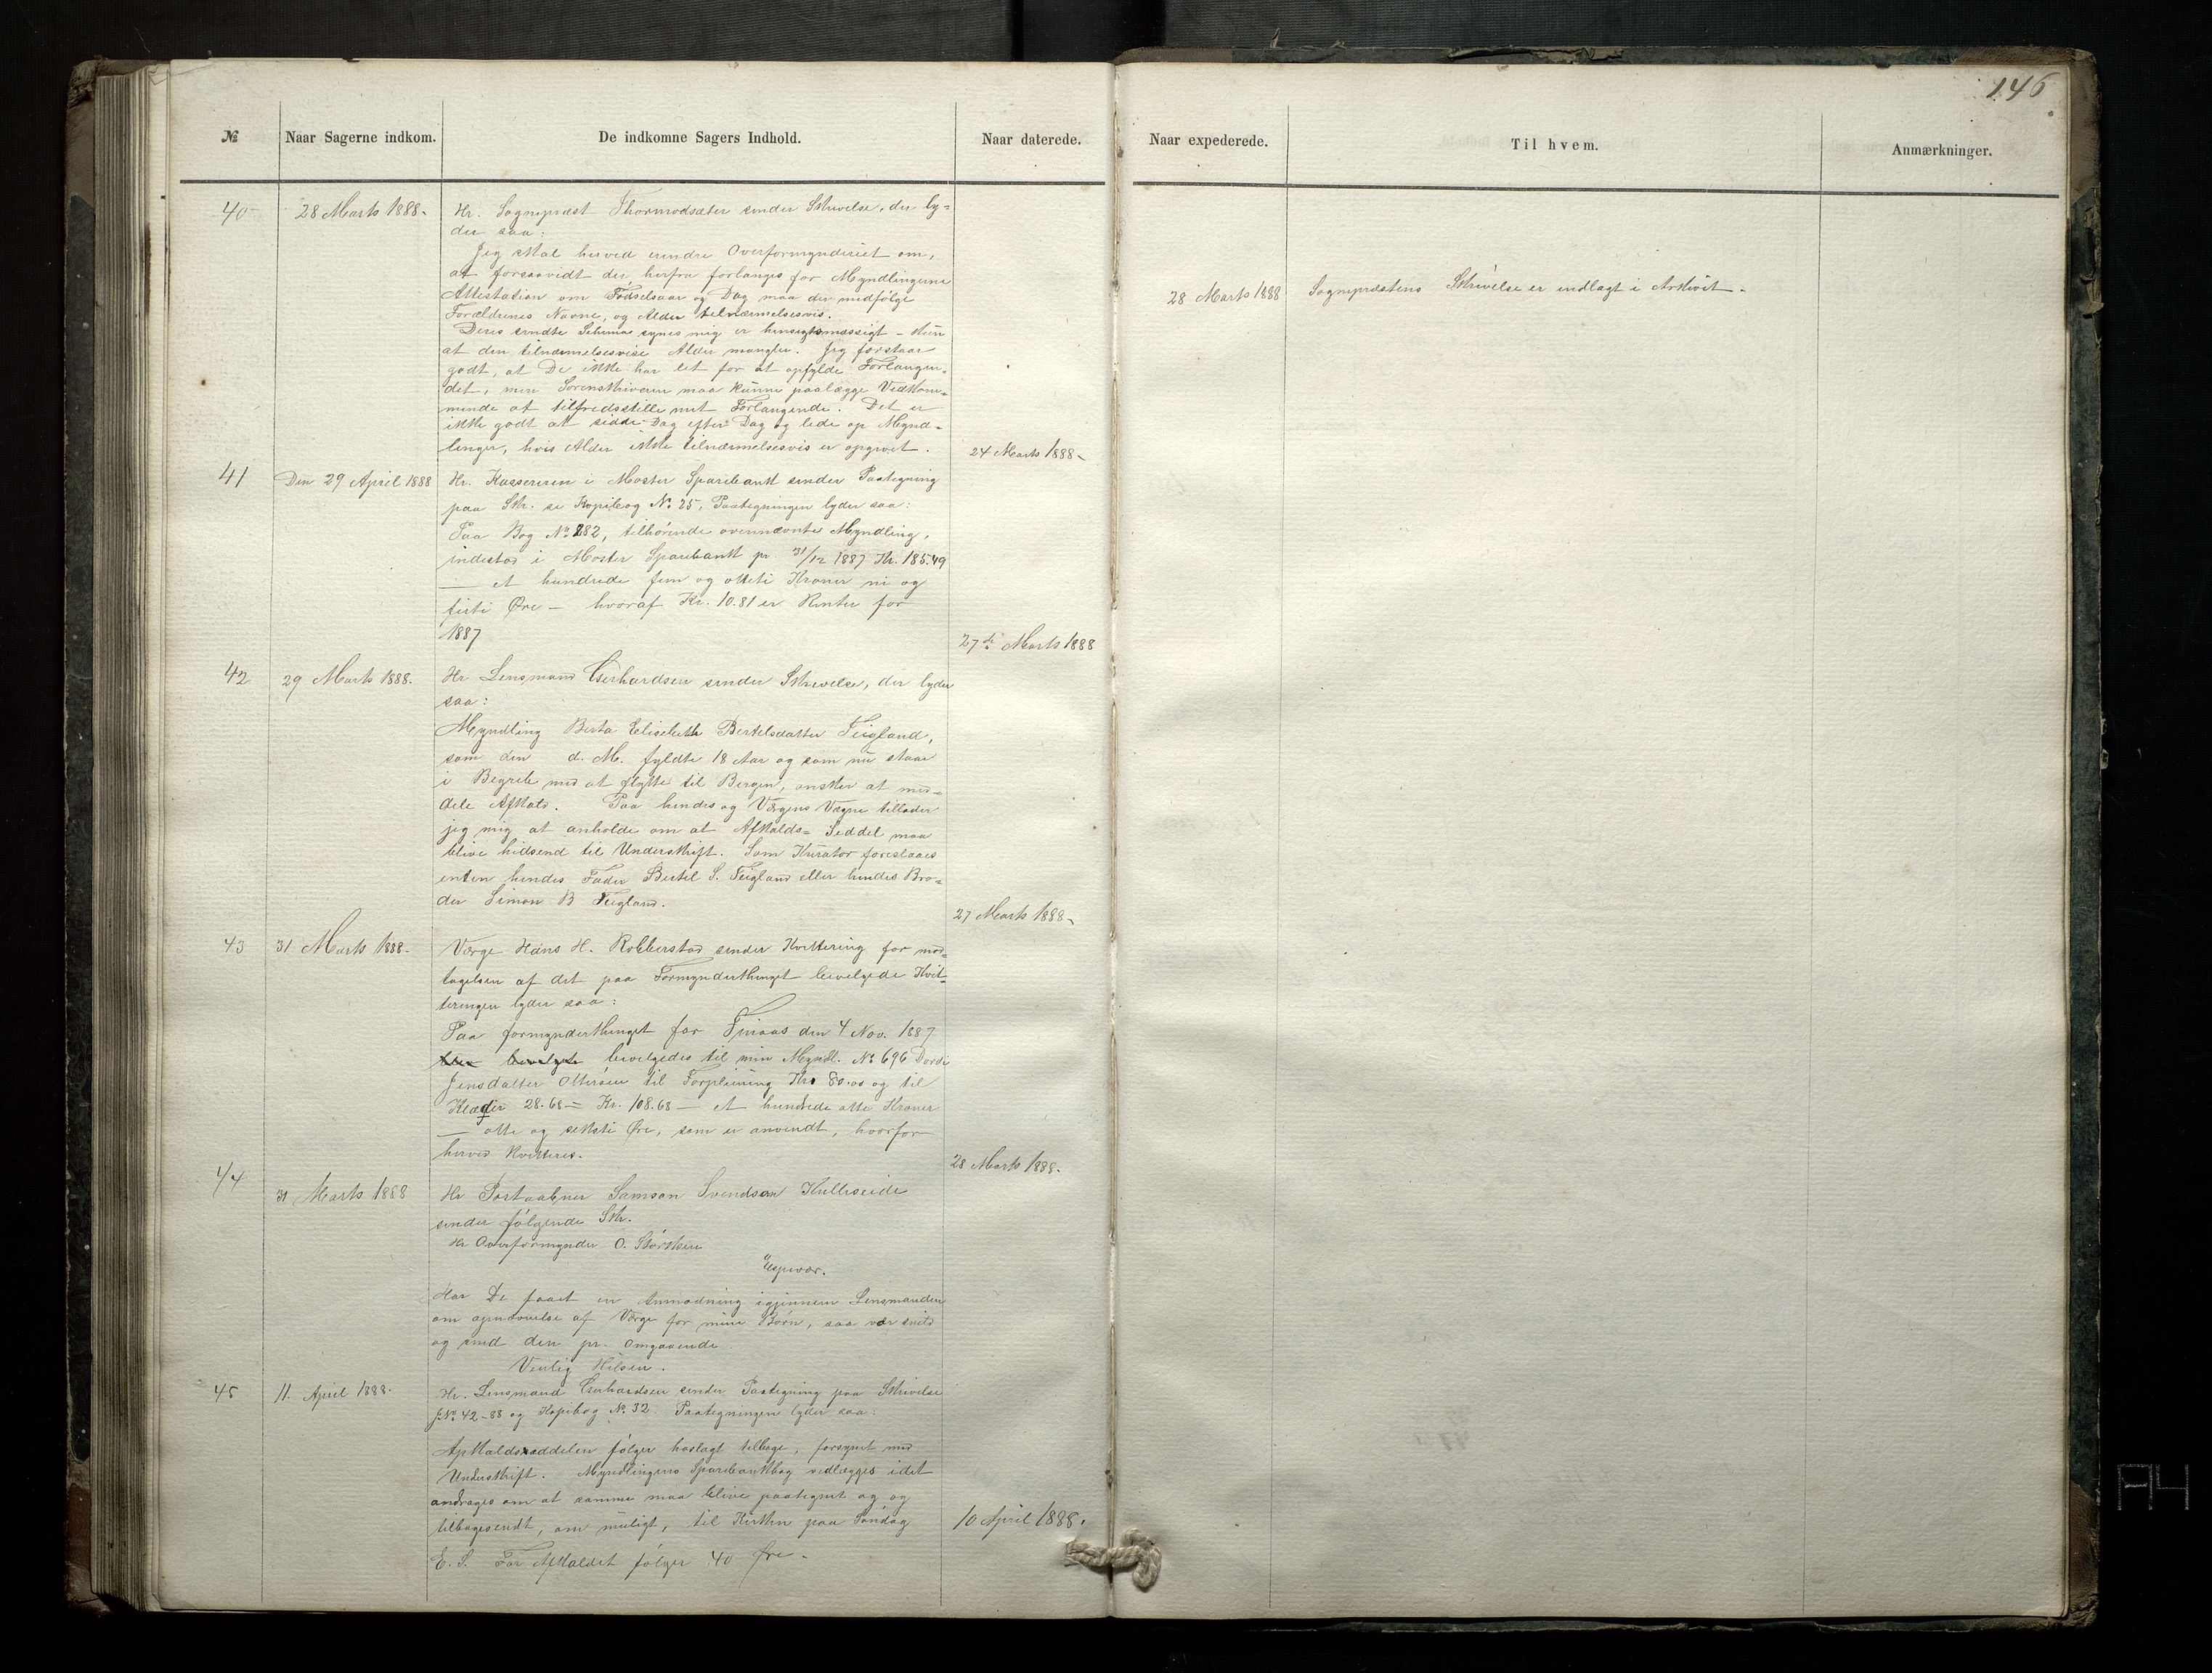 146
№ Naar Sagerne indkom. De indkomne Sagers Indhold. Naar daterede. Naar expederede. Til hvem. Anmærkninger.
40 28 Marts 1888. Hr. Sognepræst Thormodsæter sender Skrivelse, der ly=
der saa:
Jeg skal herved erindre Overformynderiet om,
at forsaavidt der herfra forlanges for Myndlingerne
Attestation om Fødselsaar og Dag maa der medfølge
Forældrenes Navne, og Alder tilnærmelsesvis.
28 Marts 1888 Sognepræstens Skrivelse er indlagt i Arkivet.
Deres sendte Schema synes mig er hensigtsmæssigt - Kun
at den tilnærmelsesvise Alder mangler. Jeg forstaar
godt, at De ikke har let for at opfylde Forlangen=
det, men Sorenskriveren maa kunne paalægge Vedkom=
mende at tilfredsstille mit Forlangende. Det er
ikke godt at sidde Dag efter Dag og lede op Mynd=
linger, hvis Alder ikke tilnærmelsesvis er opgivet.
24 Marts 1888
41 Den 29 April 1888 Hr. Kassereren i Moster Sparebank sender Paategning
paa Skr. se Kopibog No 25, Paategningen lyder saa:
Paa Bog No 282, tilhørende ovennævnte Myndling,
indestod i Moster Sparebank pr. 31/12 1887 Kr. 185.49
— et hundrede fem og otteti Kroner ni og
firti Øre — hvoraf Kr. 10.81 er Renter for
1887
27de Marts 1888
42 29 Marts 1888. Hr Lensmand Gerhardsen sender Skrivelse, der lyder
saa:
Myndling Berta Elisebeth Bertelsdatter Teigland,
som den d. M. fyldte 18 Aar og som nu staar
i Begreb med at flytte til Bergen, ønsker at med=
dele Afkald. Paa hendes og Værgens Vegne tillader
jeg mig at anholde om at Afkalds= Seddel maa
blive hidsend til Underskrift. Som Kurator foreslaaes
enten hendes Fader Bertel S. Teigland eller hendes Bro=
der Simon B Teigland.
27 Marts 1888
43 31 Marts 1888. Værge Hans H. Robberstad sender Kvittering for mod=
tagelsen af det paa Formynderthinget bevilgede Kvit=
teringen lyder saa:
Paa formynderthinget for Finaas den 4 Nov. 1887
blev bevilgede bevilgedes til min Myndl. No 696 Dordi
Jensdatter Otterøen til Forpleining Kr. 80.00 og til
Klæder 28.68 = Kr. 108.68 — et hundrede otte Kroner
— otte og seksti Øre, som er anvendt, hvorfor
herved kvitteres.
28 Marts 1888.
44 31 Marts 1888 Hr Postaabner Samson Svendsen Kulleseide
sender følgende Skr.
Hr Overformynder O. Størksen
Espevær.
Har De faaet en Anmodning igjennem Lensmanden
om opnævnelse af Værge for mine Børn, saa vær snild
og send den pr. Omgaaende
Venlig Hilsen.
45 11. April 1888. Hr. Lensmand Gerhardsen sender Paategning paa Skrivelse
J.No 42-88 og Kopibog No 32. Paategningen lyder saa:
Apkaldsseddelen følger hoslagt tilbage, forsynet med
Underskrift. Myndlingens Sparebankbog vedlægges idet
andrages om at samme maa blive paategnet og og
tilbagesendt, om muligt, til Kirken paa Søndag
10 April 1888.
E. S. For Afkaldet følger 40 Øre.